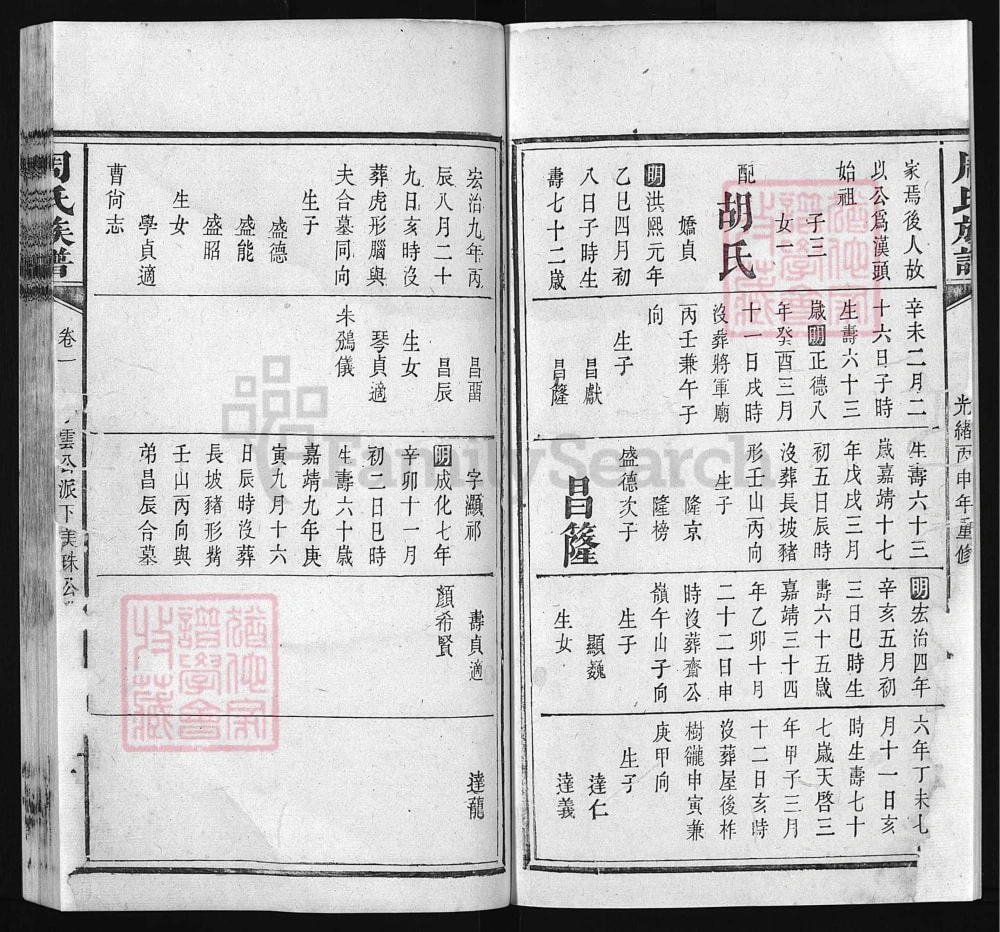 周氏族譜
光緒丙申年重修
家焉後人故
以公爲漢頭
始祖
子三
女一
配胡氏
嬌貞
明洪熙元年
乙巳四月初
八日子時生
壽七十二歲
辛未二月二
十六日子時
生壽六十三
歲明正德八
年癸酉三月
十一日戌時
沒葬將軍廟
丙壬兼午子
向
生子
昌獻
昌隆
生壽六十三
歲嘉靖十七
年戊戌三月
初五日辰時
沒葬長坡豬
形壬山丙向
生子
隆京
隆榜
盛德次子
昌隆
明宏治四年
辛亥五月初
三日巳時生
壽六十五歲
嘉靖三十四
年乙卯十月
二十二日申
時沒葬齋公
嶺午山子向
生子
顯巍
生女
六年丁未七
月十一日亥
時生壽七十
七歲天啓三
年甲子三月
十二日亥時
沒葬屋後柞
樹巃申寅兼
庚甲向
生子
達仁
達義
宏治九年丙
辰八月二十
九日亥時沒
葬虎形腦與
夫合墓同向
生子
盛德
盛能
盛昭
生女
學貞適
曹尚志
昌畱
昌辰
生女
琴貞適
朱鵷儀
字顯祁
明成化七年
辛卯十一月
初二日巳時
生壽六十歲
嘉靖九年庚
寅九月十六
日辰時沒葬
長坡豬形觜
壬山丙向與
弟昌辰合墓
壽貞適
顏希賢
達龍
周氏族譜
卷一
雲公派下美珠公
FamilySearch